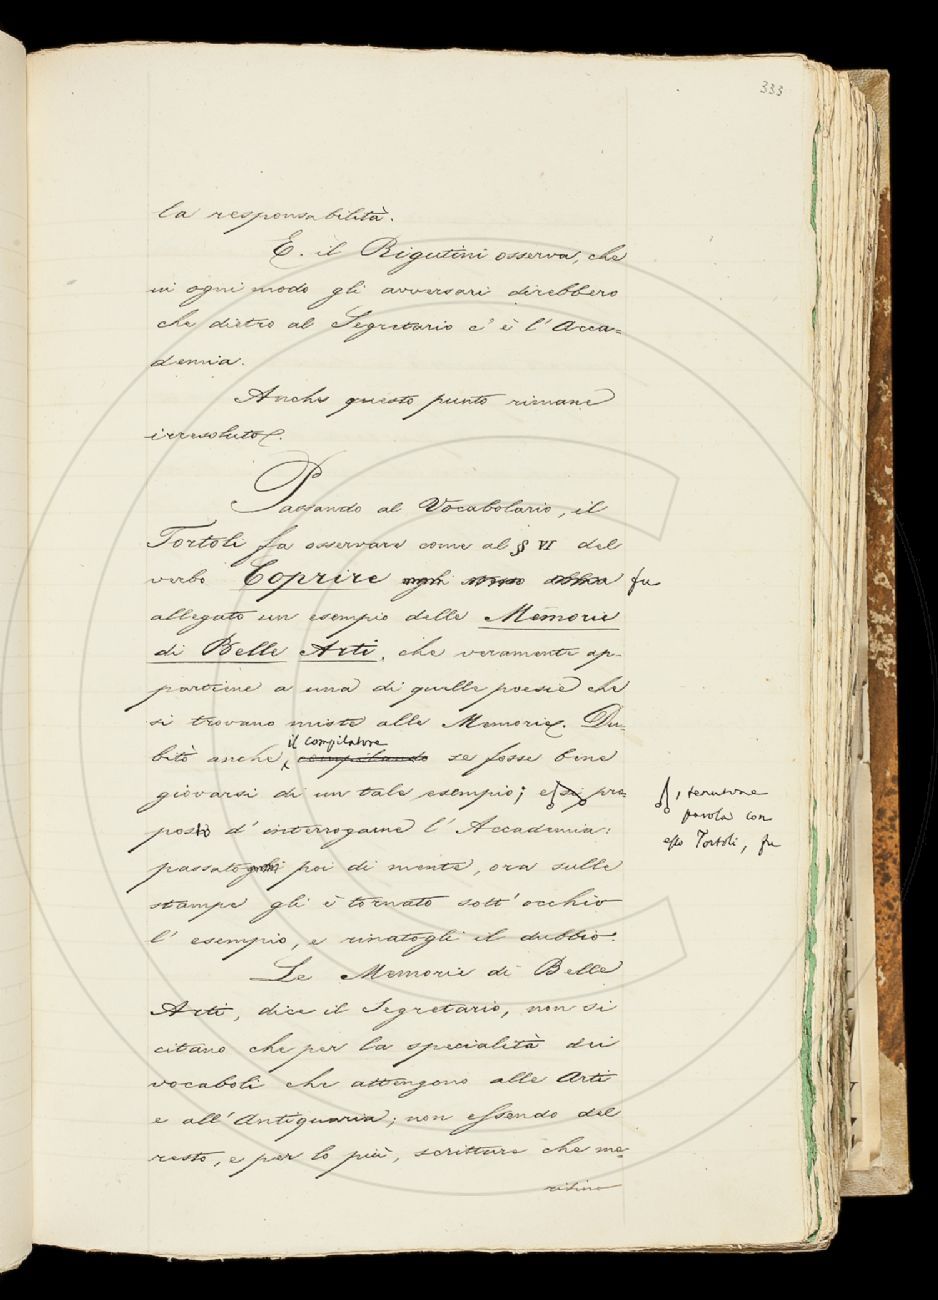 333
la responsabilità.
E. il Rigutini osserva, che
in ogni modo gli avversari direbbero
che dietro al Segretario c'è l'Acca=
demia.
Anche questo punto rimane
irresoluto.
Passando al Vocabolario, il
Tortoli fa osservare come al § VI del
verbo Coprire fu
allegato un esempio delle Memorie
di Belle Arti, che veramente ap-
partiene a una di quelle poesie che
si trovano miste alle Memorie. Du-
il compilatore
bitò anche, compilando se fosse bene
giovarsi di un tale esempio; e si pro-
, tenutone
parola con
esso Tortoli, fu
posto d'interrogarne l'Accademia:
passatogli poi di mente, ora sulle
stampe gli è tornato sott'occhio
l'esempio, e rinatogli il dubbio.
Le Memorie di Belle
Arti, dice il Segretario, non si
citano che per la specialità dei
vocaboli che attengono alle Arti
e all'Antiquaria; non essendo del
resto, e per lo più, scritture che me=
ritino